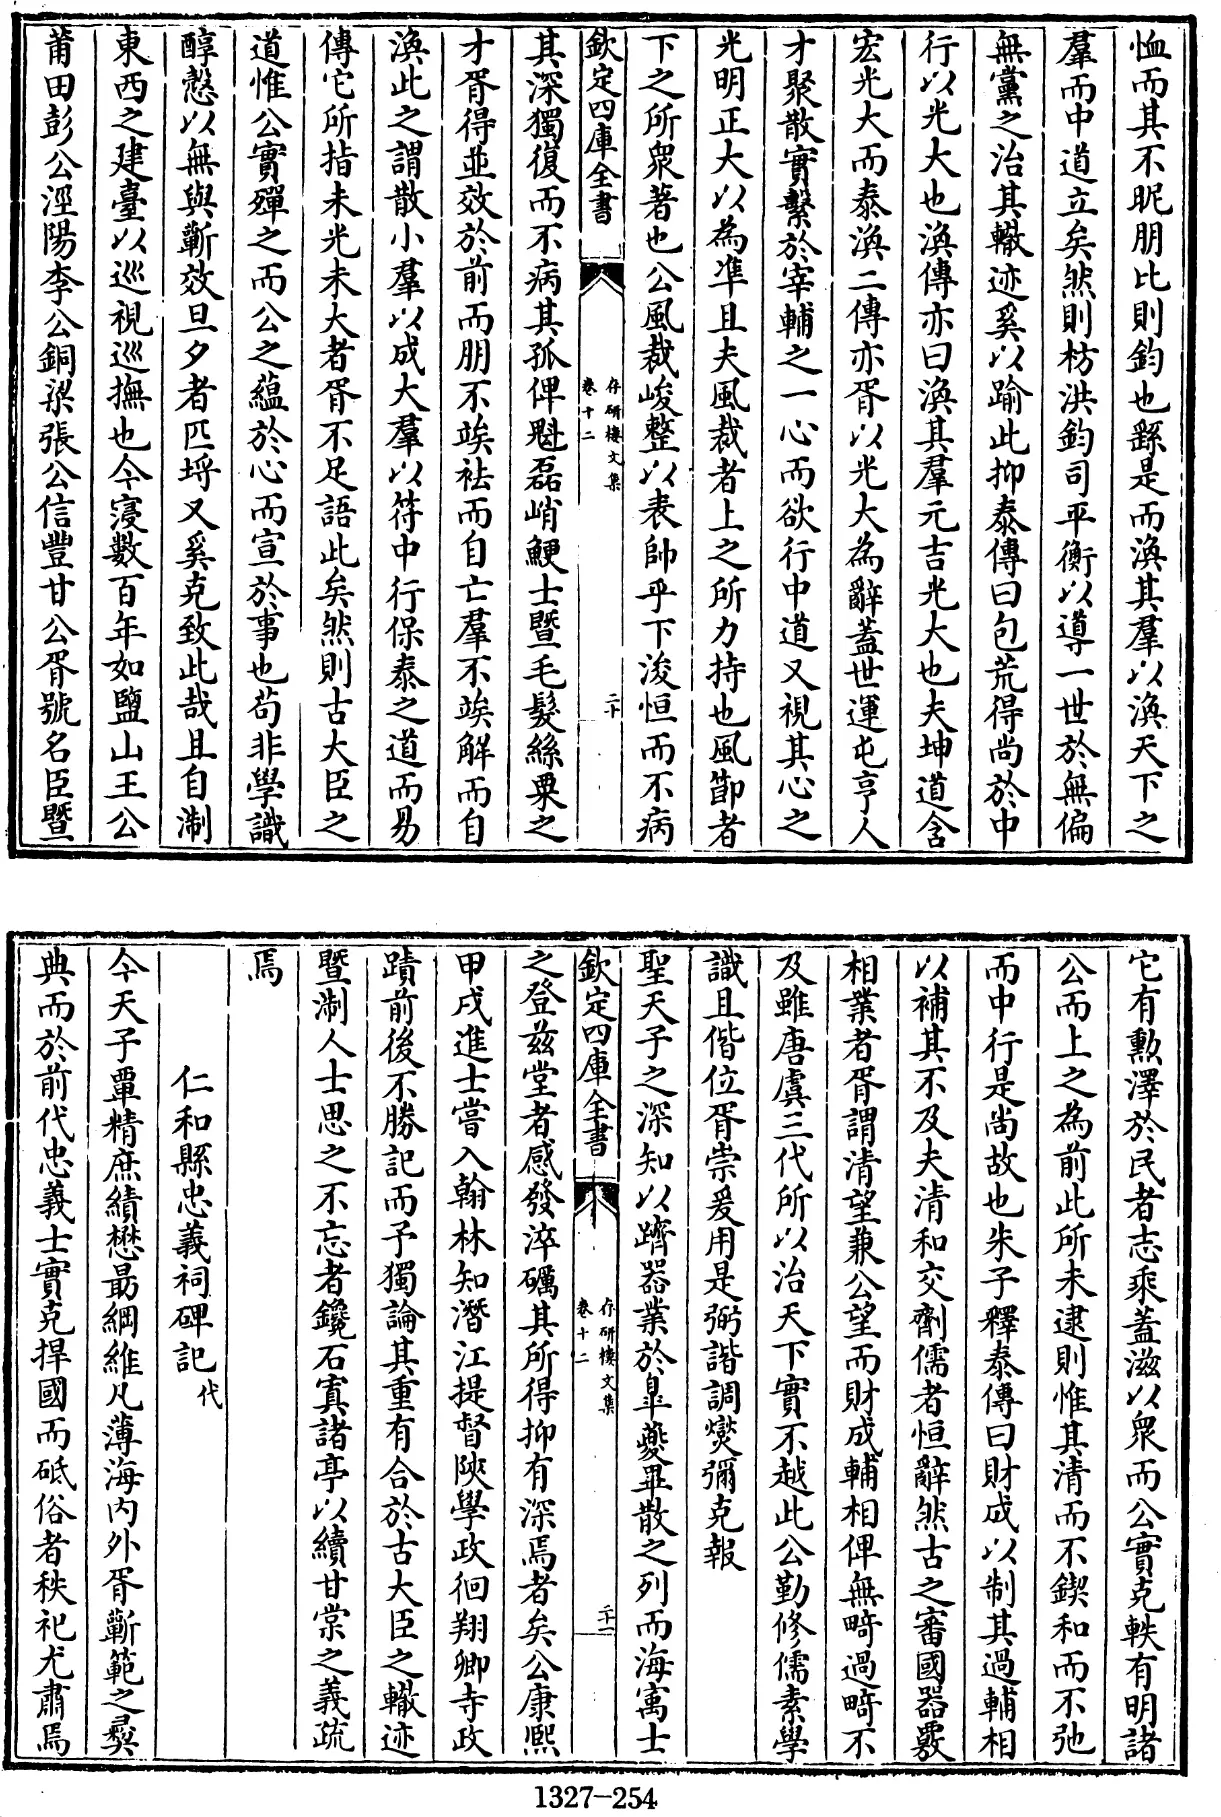 恤而其不昵朋比則鈞也繇是而渙其羣以渙天下之
羣而中道立矣然則枋洪鈞司平衡以導一世於無偏
無黨之治其轍迹奚以踰此抑泰傳曰包荒得尚於中
行以光大也渙傳亦曰渙其羣元吉光大也夫坤道含
宏光大而泰渙二傳亦胥以光大為辭蓋世運屯亨人
才聚散實繫於宰輔之一心而欲行中道又視其心之
光明正大以為準且夫風裁者上之所力持也風節者
下之所衆著也公風裁峻整以表帥乎下浚恒而不病
欽定四庫全書
存研樓文集
卷十二
二十
其深獨復而不病其孤俾魁磊峭鯁士暨毛髮絲粟之
才胥得並效於前而朋不竢袪而自亡羣不竢解而自
渙此之謂散小羣以成大羣以符中行保泰之道而易
傳它所指未光未大者胥不足語此矣然則古大臣之
道惟公實殫之而公之蘊於心而宣於事也苟非學識
醇慤以無與蘄效旦夕者匹埒又奚克致此哉且自淛
東西之建臺以巡視巡撫也今寖數百年如鹽山王公
莆田彭公涇陽李公銅梁張公信豐甘公胥號名臣暨
它有勲澤於民者志乘蓋滋以衆而公實克軼有明諸
公而上之為前此所未逮則惟其清而不鍥和而不弛
而中行是尚故也朱子釋泰傳曰財成以制其過輔相
以補其不及夫清和交劑儒者恒辭然古之審國器覈
相業者胥謂清望兼公望而財成輔相俾無畸過畸不
及雖唐虞三代所以治天下實不越此公勤修儒素學
識且偕位胥崇爰用是弼諧調爕彌克報
聖天子之深知以躋器業於臯夔畢散之列而海寓士
欽定四庫全書
存研樓文集
卷十二
二十一
之登兹堂者感發淬礪其所得抑有深焉者矣公康熙
甲戌進士嘗入翰林知潛江提督陜學政徊翔卿寺政
蹟前後不勝記而予獨論其重有合於古大臣之轍迹
暨淛人士思之不忘者鑱石寘諸亭以續甘棠之義疏
焉
仁和縣忠義祠碑記代
今天子覃精庶績懋勗綱維凡薄海内外胥蘄範之彛
典而於前代忠義士實克捍國而砥俗者秩祀尤肅焉
1327-254